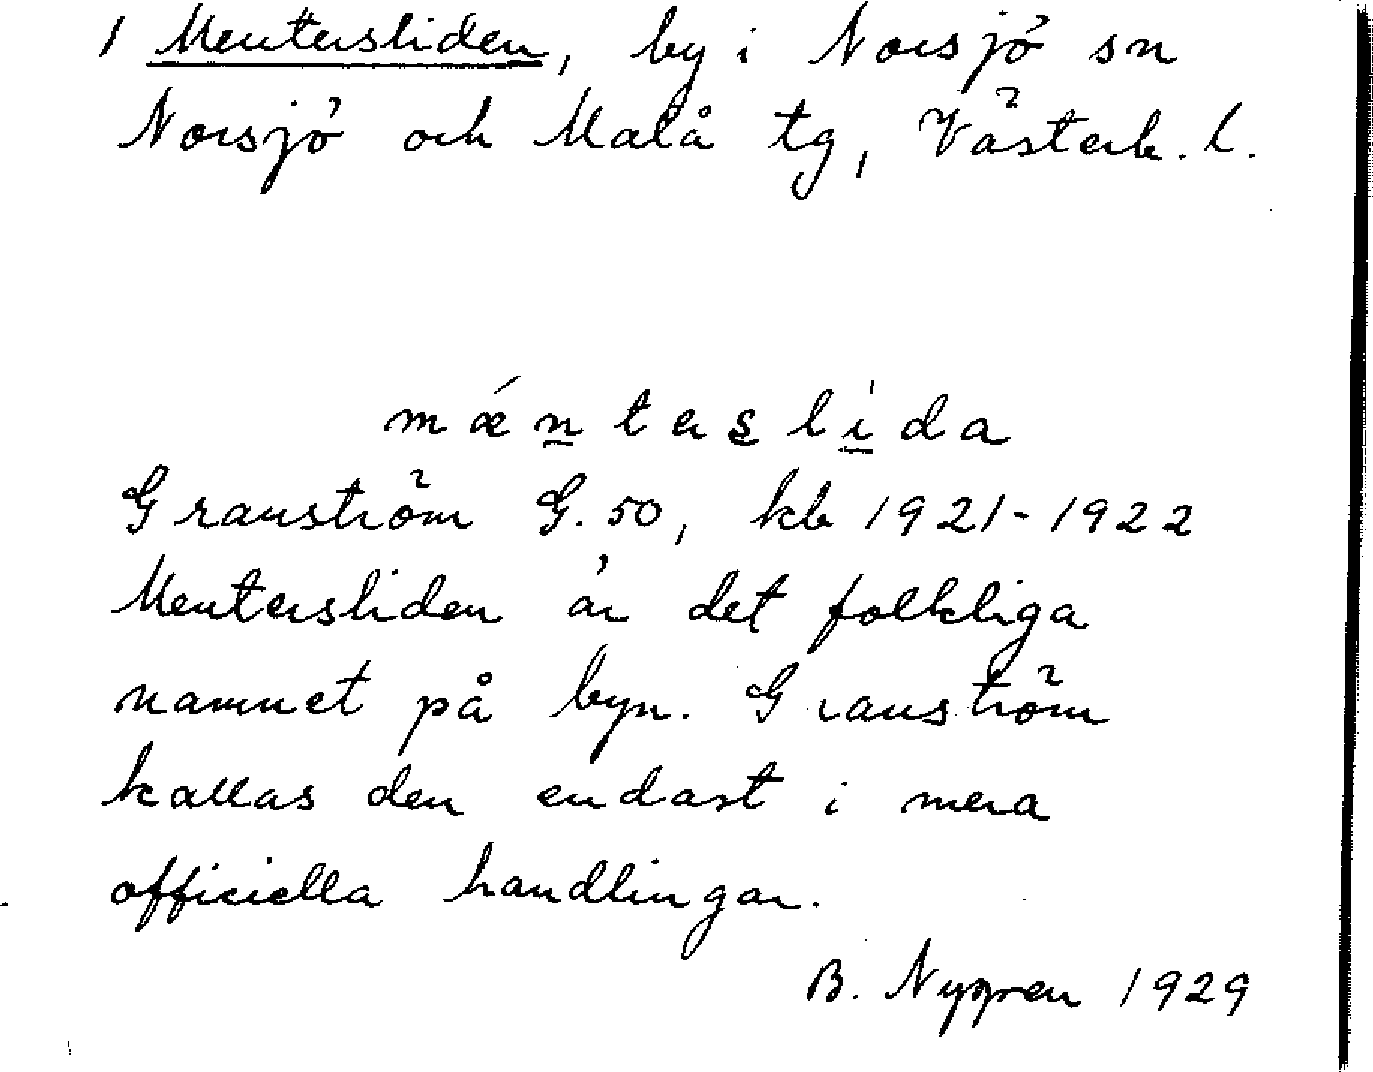 1 Mentersliden, by i Norsjö sn
Norsjö och Malå tg, Västerb. l.
mǽntaslida
Granström G. 50, kb 1921-1922
Mentersliden är det folkliga
namnet på byn. Granström
kallas den endast i mera
officiella handlingar.
B. Nygren 1929